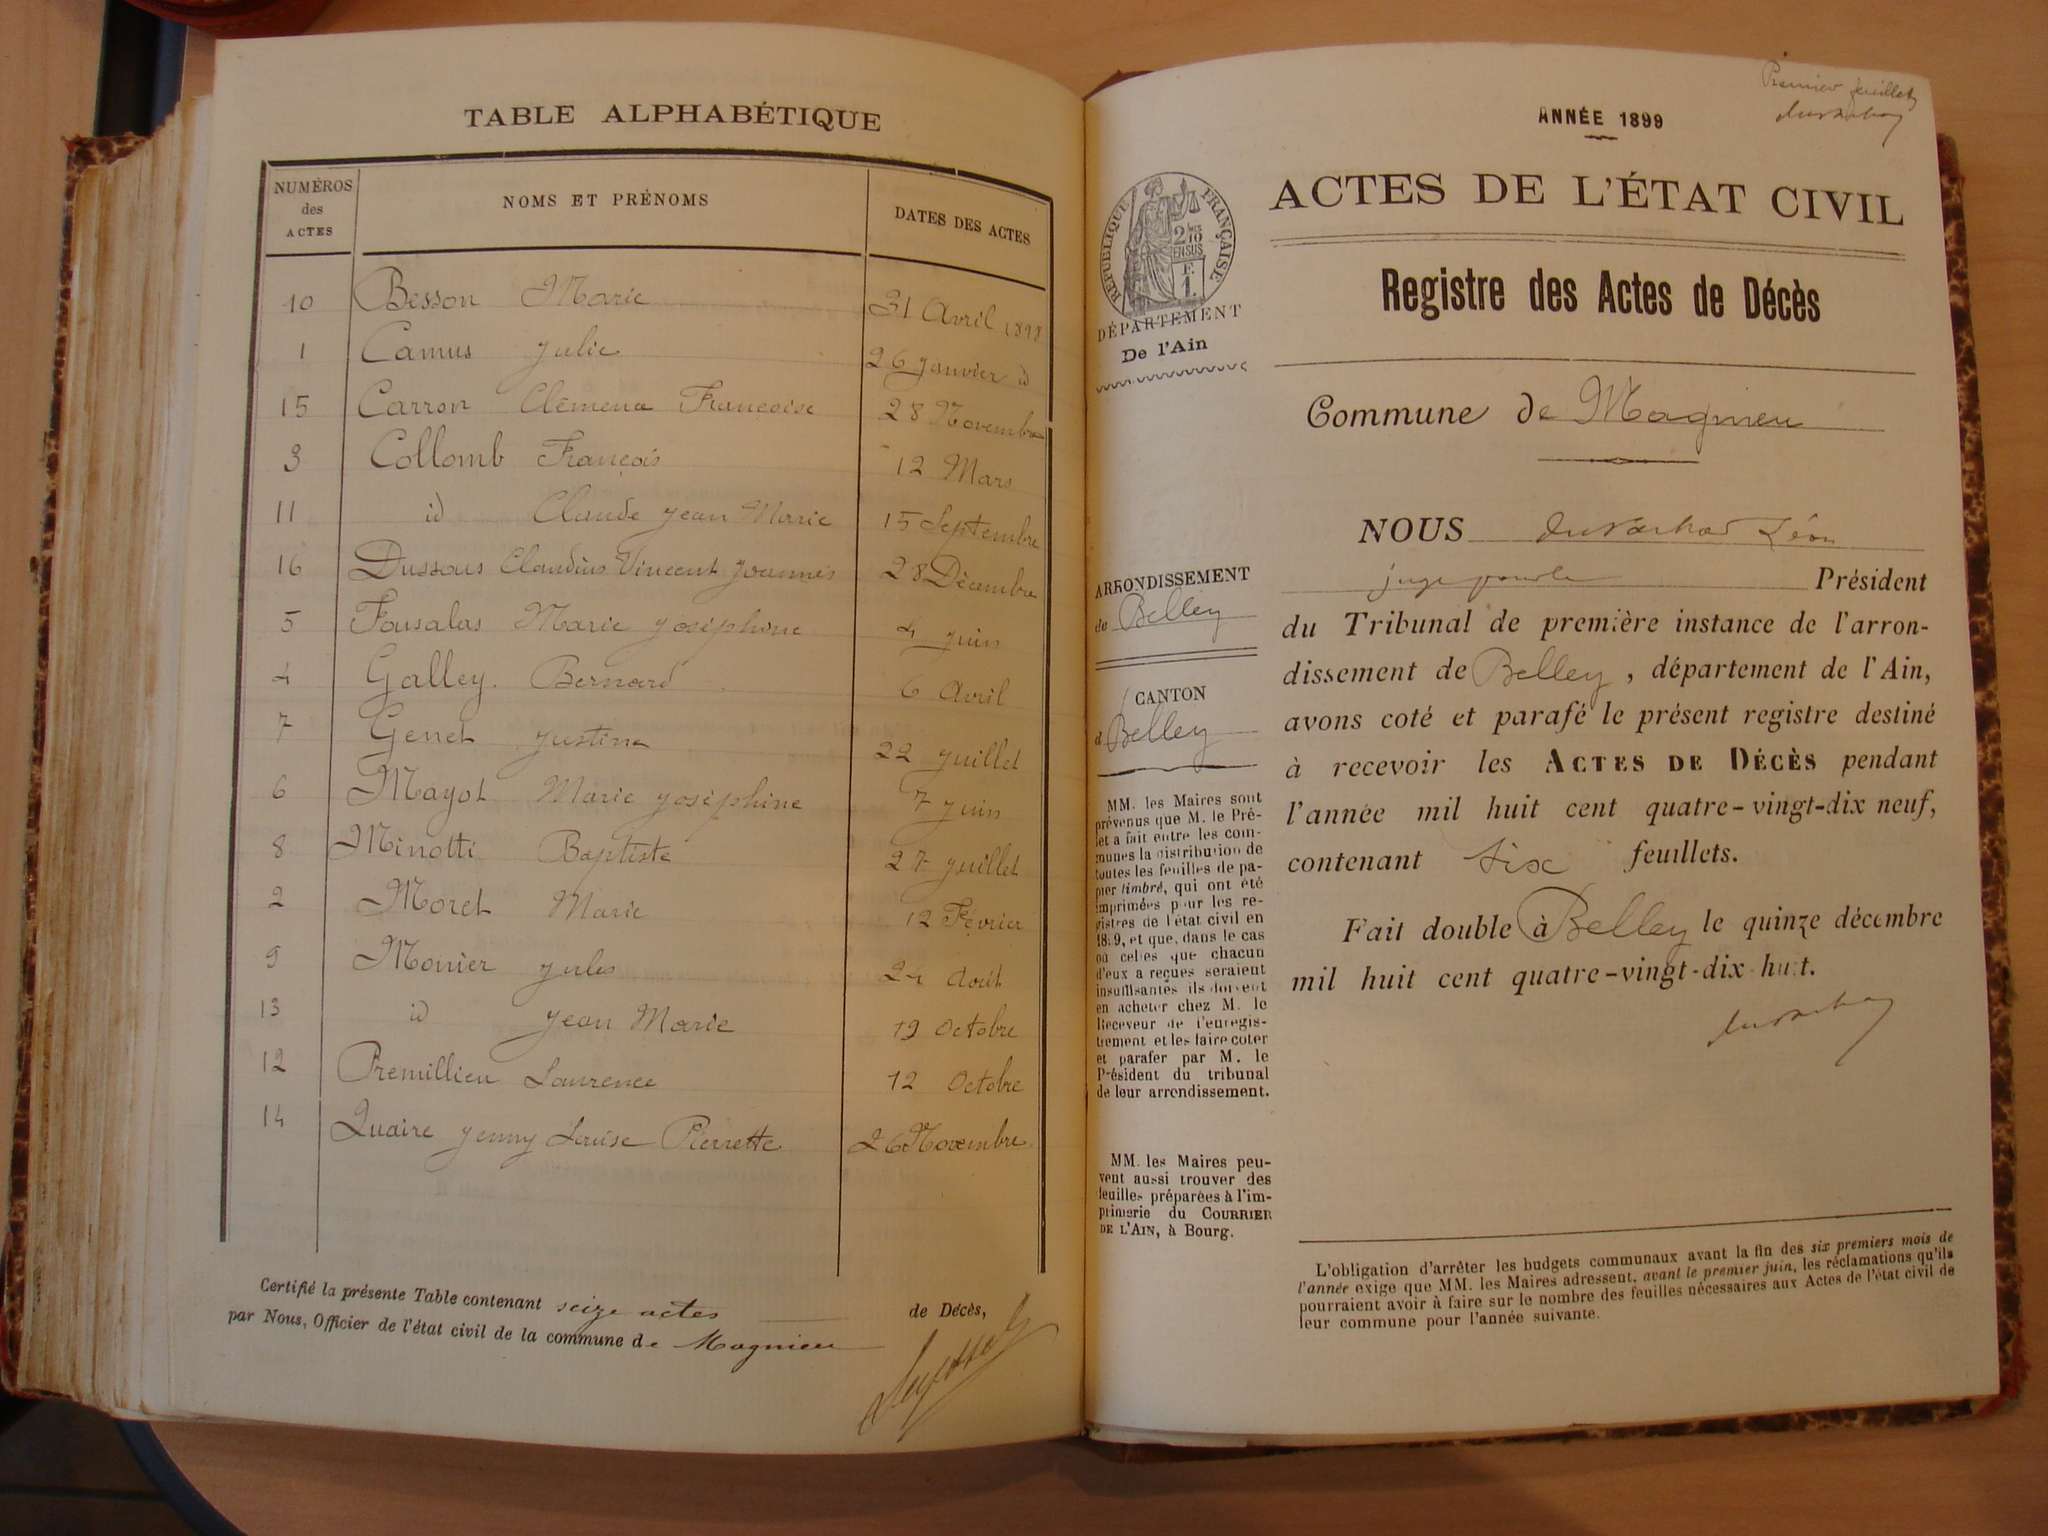 TABLE ALPHABÉTIQUE
NUMÉROS des ACTES NOMS ET PRÉNOMS DATES DES ACTES
10 Besson Marie 31 Avril 1898
1 Camus Julie 26 Janvier id
15 Carron Clémence Françoise 28 Novembre
3 Collomb François 12 Mars
11 id Claude Jean Marie 15 Septembre
16 Dussous Claudius Vincent Joannès 28 Décembre
5 Fousalas Marie Joséphine 4 Juin
4 Galley Bernard 6 Avril
7 Genet Justine 22 Juillet
6 Mayot Marie Joséphine 7 Juin
8 Minotti Baptiste 27 Juillet
2 Moret Marie 12 Février
9 Monier Jules 24 Août
13 id Jean Marie 19 Octobre
12 Premillieu Laurence 12 Octobre
14 Quaire Jenny Louise Pierrette 26 Novembre
Certifié la présente Table contenant seize actes de Décès,
par Nous, Officier de l'état civil de la commune de Magnieu
Premier feuillet
ANNÉE 1899
ACTES DE L'ÉTAT CIVIL
RÉPUBLIQUE FRANÇAISE
2/10 EN SUS
F. 1.
DÉPARTEMENT
De l'Ain
Registre des Actes de Décès
Commune de Magnieu
ARRONDISSEMENT
de Belley
CANTON
d Belley
MM. les Maires sont
prévenus que M. le Pré-
fet a fait entre les com-
munes la distribution de
toutes les feuilles de pa-
pier timbré, qui ont été
imprimées pour les re-
gistres de l'état civil en
1899, et que, dans le cas
où celles que chacun
d'eux a reçues seraient
insuffisantes ils doivent
en acheter chez M. le
Receveur de l'enregis-
trement et les faire coter
et parafer par M. le
Président du tribunal
de leur arrondissement.
MM. les Maires peu-
vent aussi trouver des
feuilles préparées à l'im-
primerie du COURRIER
DE L'AIN, à Bourg.
NOUS Léon
juge pour le Président
du Tribunal de première instance de l'arron-
dissement de Belley, département de l'Ain,
avons coté et parafé le présent registre destiné
à recevoir les ACTES DE DÉCÈS pendant
l'année mil huit cent quatre-vingt-dix neuf,
contenant six feuillets.
Fait double à Belley le quinze décembre
mil huit cent quatre-vingt-dix huit.
L'obligation d'arrêter les budgets communaux avant la fin des six premiers mois de
l'année exige que MM. les Maires adressent, avant le premier juin, les réclamations qu'ils
pourraient avoir à faire sur le nombre des feuilles nécessaires aux Actes de l'état civil de
leur commune pour l'année suivante.